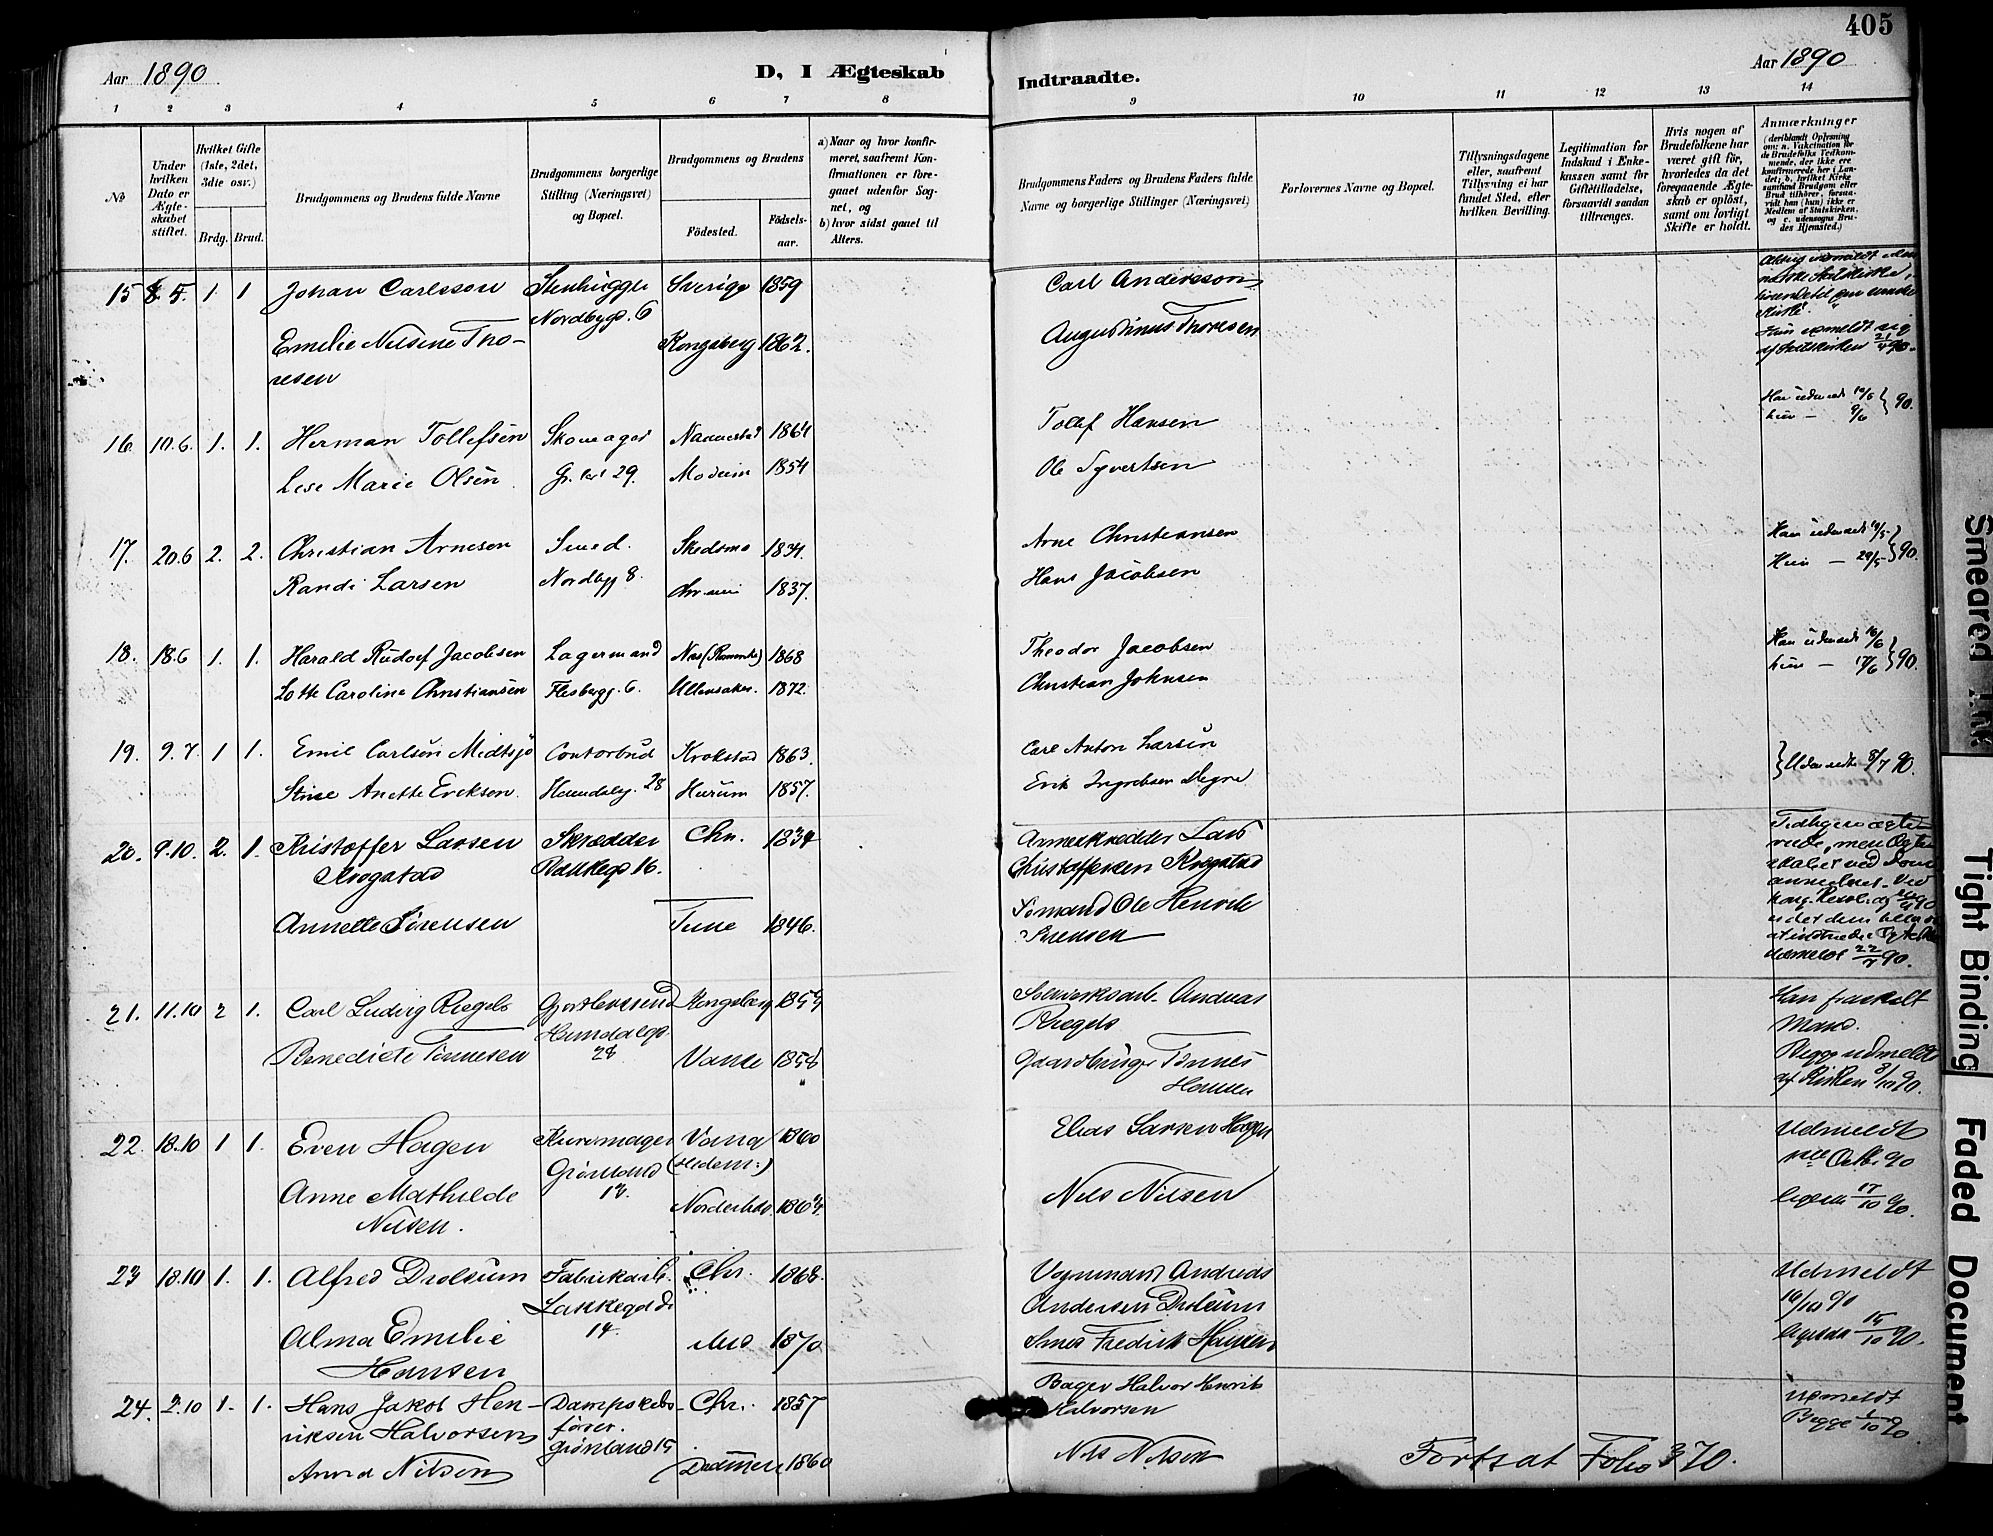 405
Aar 1890
D, I Ægteskab
Indtraadte.
Aar 1890
1 2 3 4 5 6 7 8 9 10 11 12 13 14
No
Under
hvilken
Dato er
Ægte-
skabet
stiftet.
Hvilket Gifte
(1ste, 2det,
3die osv.)
Brdg. Brud.
Brudgommens og Brudens fulde Navne
Brudgommens borgerlige
Stilling (Næringsvei)
og Bopæl.
Brudgommens og Brudens
Fødested.
Fødsels-
aar.
a) Naar og hvor konfir-
meret, saafremt Kon-
firmationen er fore-
gaaet udenfor Sog-
net, og
b) hvor sidst gaaet til
Alters.
Brudgommens Faders og Brudens Faders fulde
Navne og borgerlige Stillinger (Næringsvei)
Forlovernes Navne og Bopæl.
Tillysningsdagene
eller, saafremt
Tillysning ei har
fundet Sted, efter
hvilken Bevilling.
Legitimation for
Indskud i Enke-
kassen samt for
Giftetilladelse,
forsaavidt saadan
tiltrænges.
Hvis nogen af
Brudefolkene har
været gift før,
hvorledes da det
foregaaende Ægte-
skab er opløst,
samt om lovligt
Skifte er holdt.
Anmærkninger
(deriblandt Oplysning
om: a. Vakcination for
de Brudefolks Vedkom-
mende, der ikke ere
konfirmerede her i Lan-
det; b. hvilket Kirke
samfund Brudgom eller
Brud tilhører, forsaa-
vidt han (hun) ikke er
Medlem af Statskirken,
og c. udensogns Bru-
des Hjemsted.)
15 8.5. 1. 1 Johan Carlsson Stenhugger Sverige 1859 Carl Andersson
Nordbygd. 6
Emilie Nilsine Tho- Kongsberg 1862. Augustinus Thoresen
resen
Hun udmeldt sig
af Statskirken 21/4 90.
16. 10.6. 1. 1. Herman Tollefsen Skomager Nannestad 1864 Tollef Hansen
Lise Marie Olsen Gr. 29. Modum 1854 Ole Syvertsen
90.
17. 20.6 2. 2. Christian Arnesen Smed. Skedsmo 1834. Arne Christiansen
Randi Larsen Nordbyg 8. 1837. Hans Jacobsen
Hun — 29/5 90.
18. 18.6 1. 1. Harald Rudolf Jacobsen Lagermand Nes (Romerike) 1868 Theodor Jacobsen
Lotte Caroline Christiansen Flesbergg. 6. Ullensaker. 1872. Christian Johnsen
hun — 17/6 90.
19. 9.7. 1 1. Emil Carlsen Midtsjø Contorbud Krokstad 1863. Carl Anton Larsen
Stine Anette Eriksen. 28 Hurum 1857. Erik Ingebretsen
8/7 90.
20. 9.10. 2. 1. Kristoffer Larsen Skrædder Chr. 1834 Lars
Krogstad 16. Christoffersen Krogstad
Sømand Ole Henrik
Annette Sørensen Tune 1846. Sørensen
udmeldt 22/7 90.
21. 11.10 2 1. Carl Ludvig Riegels Kongsberg Andreas
Riegels
Benedicte Tønnesen 28 Vanse 1858 Gaardbruger Tønnes
Hansen
Han fraskilt
Mand.
Begge udmeldt
af Kirken 8/10 90.
22. 18.10 1 1. Even Hagen Kurvmager Vang 1860 Elias Larsen Hagen
Grønland (Hedem:)
Anne Mathilde 12. Norderhov. 1864. Nils Nilsen
Nilsen.
Udmeldt
Octbr 90
17/10 90.
23 18.10 1. 1. Alfred Drolsum Fabrikarb. Chr. 1868. Vognmand Andreas
Lakkegd Andersen Drolsum
Alma Emilie 14. 1870 Fredrik Hansen
Hansen
Udmeldt
16/10 90
15/10 90.
24. 2.10 1. 1. Hans Jakob Hen- Dampskibs- Chr. 1857 Bager Halvor Henrik
riksen Halvorsen fører. Halvorsen
Grønland 15
Anna Nilsen 1860 Nils Nilsen
Udmeldt
Begge 1/10 90.
Fortsat Folio 370.
Smeared Ink
Tight Binding
Faded Document